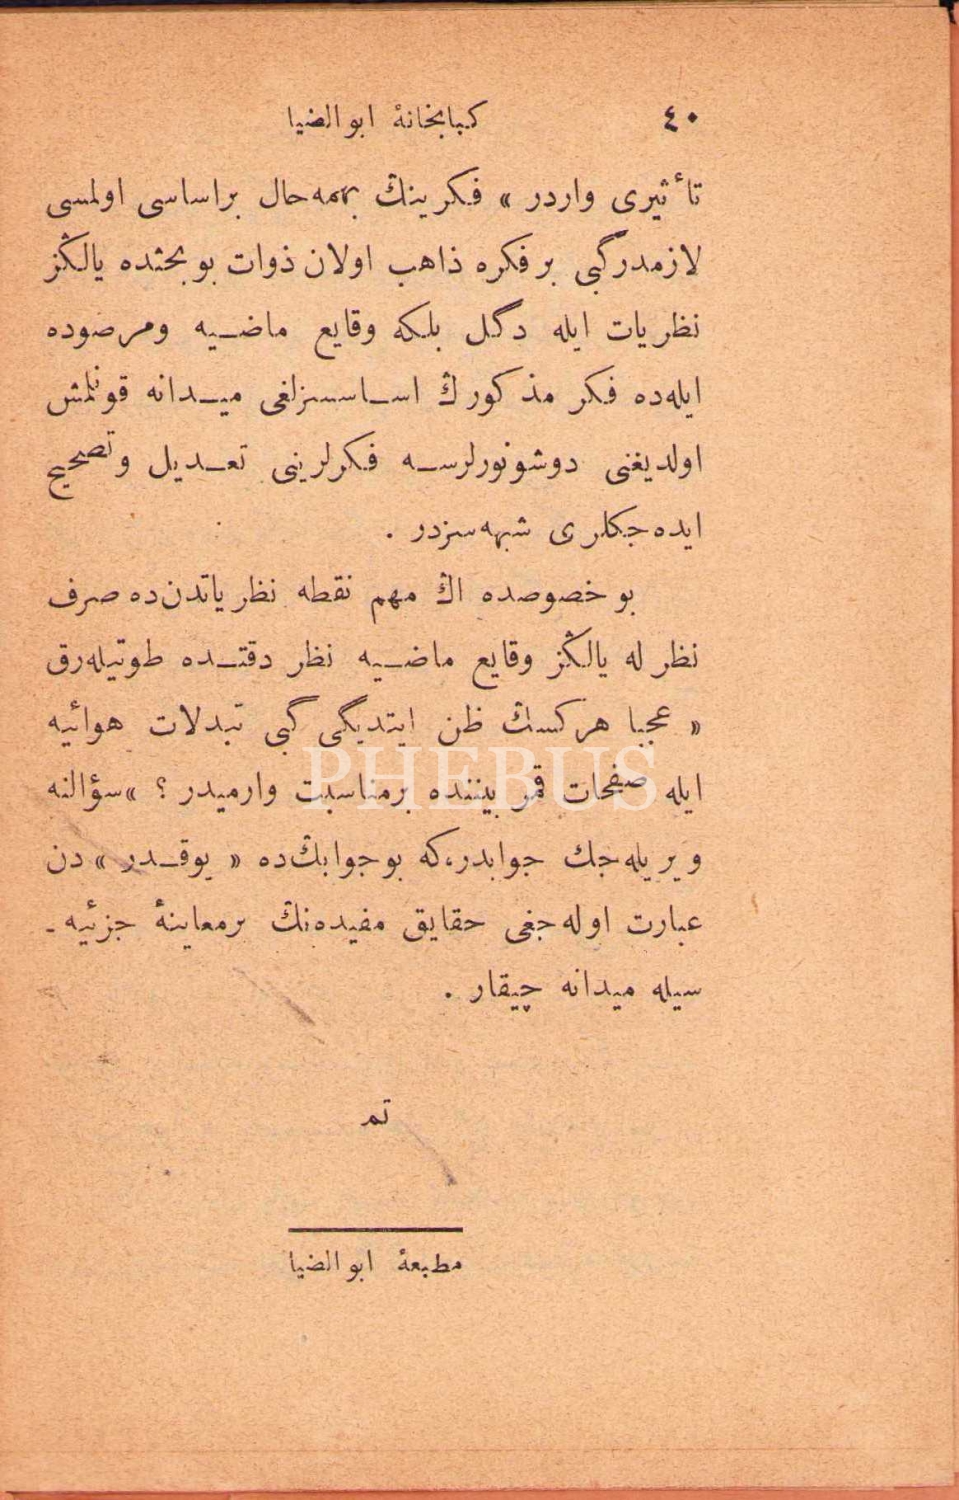 ٤٠ كتابخانهٔ ابوالضيا
تأثيرى واردر » فكرينڭ بهمه‌حال براساسى اولمسى
لازمدرگبى بر فكره ذاهب اولان ذوات بوبحثده يالڭز
نظريات ايله دگل بلكه وقايع ماضيه ومرصوده
ايله‌ده فكر مذكورڭ اساسسزلغى ميدانه قونلمش
اولديغنى دوشونورلرسه فكرلرينى تعديل وتصحيح
ايده‌جكلرى شبهه‌سزدر .
بو خصوصده اڭ مهم نقطه نظرياتدن‌ده صرف
نظرله يالڭز وقايع ماضيه نظر دقتده طوتيله‌رق
« عجبا هركسڭ ظن ايتديگى گبى تبدلات هوائيه
ايله صفحات قمر بيننده برمناسبت وارميدر ؟ »سؤالنه
ويريله‌جك جوابدر،كه بوجوابڭ‌ده « يوقدر »دن
عبارت اوله‌جغى حقايق مفيده‌نڭ برمعاينهٔ جزئيه-
سيله ميدانه چيقار .
تم
مطبعهٔ ابوالضيا
PHEBUS